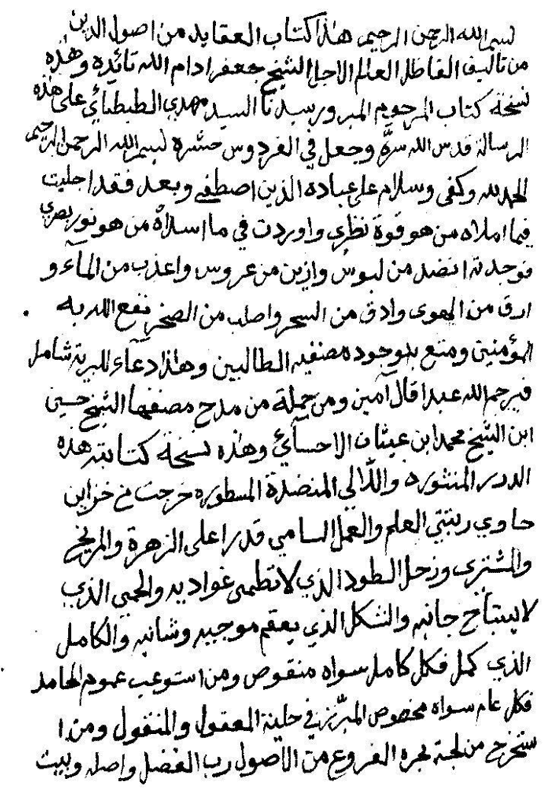 بسم الله الرحمن الرحيم هذا كتاب العقايد من اصول الدين
من تاليف الفاضل العالم الاجل الشيخ جعفر ادام الله تائيده وهذه
نسخة كتاب المرحوم المبرور سيدنا السيد مهدي الطبطبائي على هذه
الرسالة قدس الله سره وجعل في الفردوس حشره بسم الله الرحمن الرحيم
الحمد لله وكفى وسلام على عباده الذين اصطفى وبعد فقد اجليت
فيما املاه من هو قوة نظري واوردت في ما اسلاه من هو نور بصري
فوجدته انضد من لبوس وازين من عروس واعذب من الماء و
ارق من الهوى وادق من السحر واصلب من الصخر نفع الله به
المؤمنين ومتع بوجود مصنفيه الطالبين وهذا دعاء للبرية شامل
فيرحم الله عبدا قال آمين ومن جملة من مدح مصنفها الشيخ حسين
ابن الشيخ محمد ابن عيثان الاحسائي وهذه نسخة كتابته هذه
الدرر المنثوره واللآلي المنضدة المسطوره خرجت من خزاين
حاوي رتبتي العلم والعمل السامي قدرا على الزهرة والمريخ
والمشتري وزحل الطود الذي لا تطمى غواديه والحمى الذي
لا يستباح جانبه والشكل الذي يعقم موجبه وسالبه والكامل
الذي كمل فكل كامل سواه منقوص ومن استوعب عموم المحامد
فكل عام سواه مخصوص المبرز في حلبة المعقول والمنقول ومن ا
ستخرج من لجة بحره الفروع من الاصول رب الفضل واصله وبيت